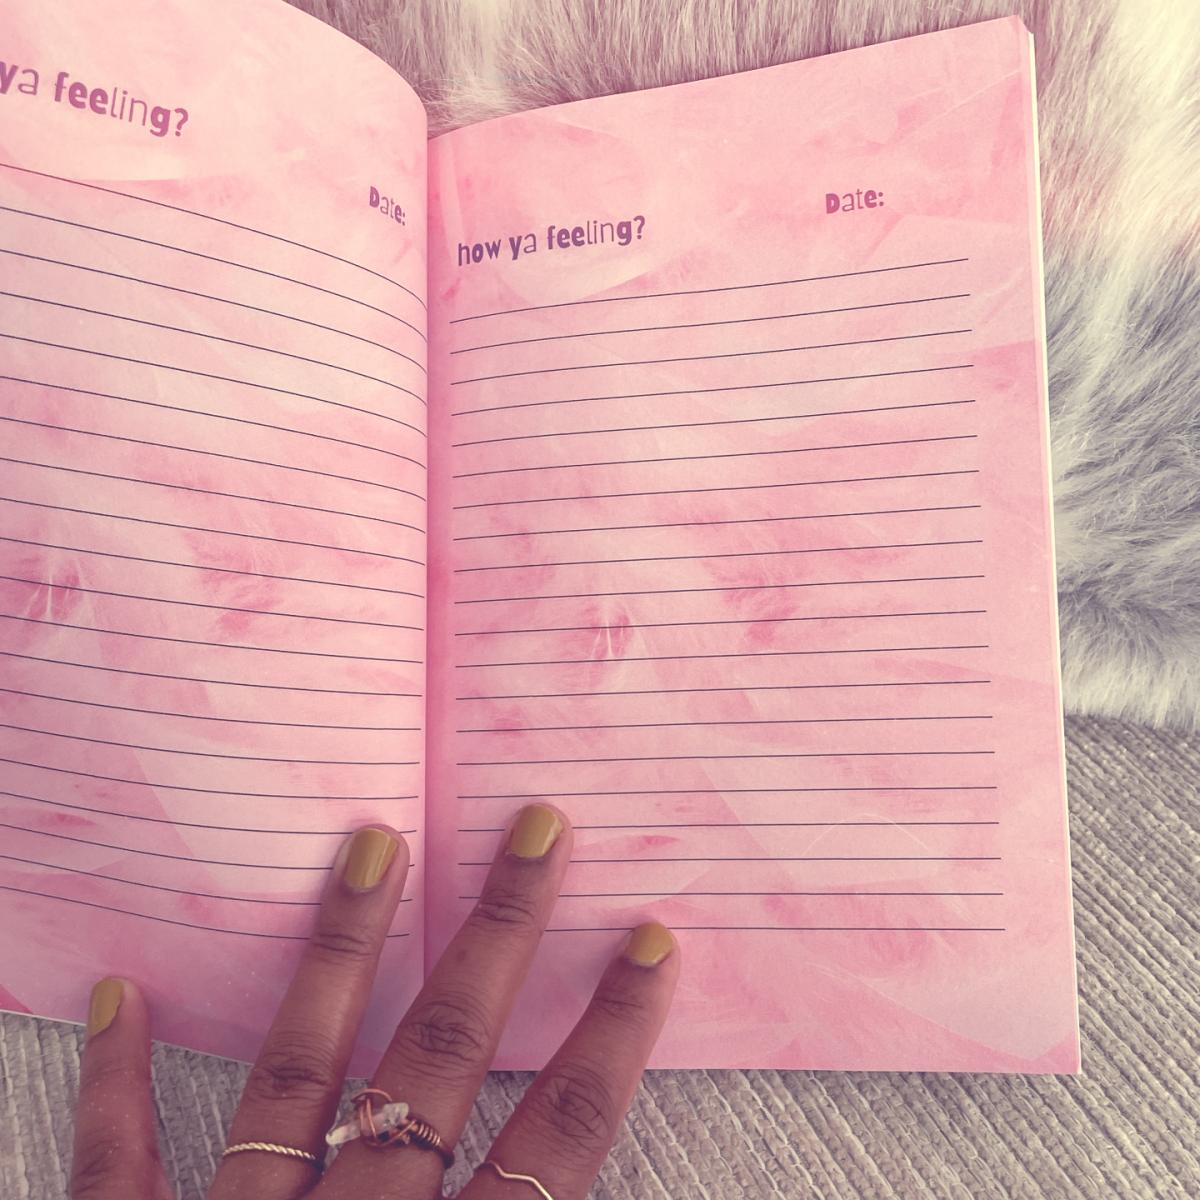 ya feeling?
Date:
how ya feeling?
Date: